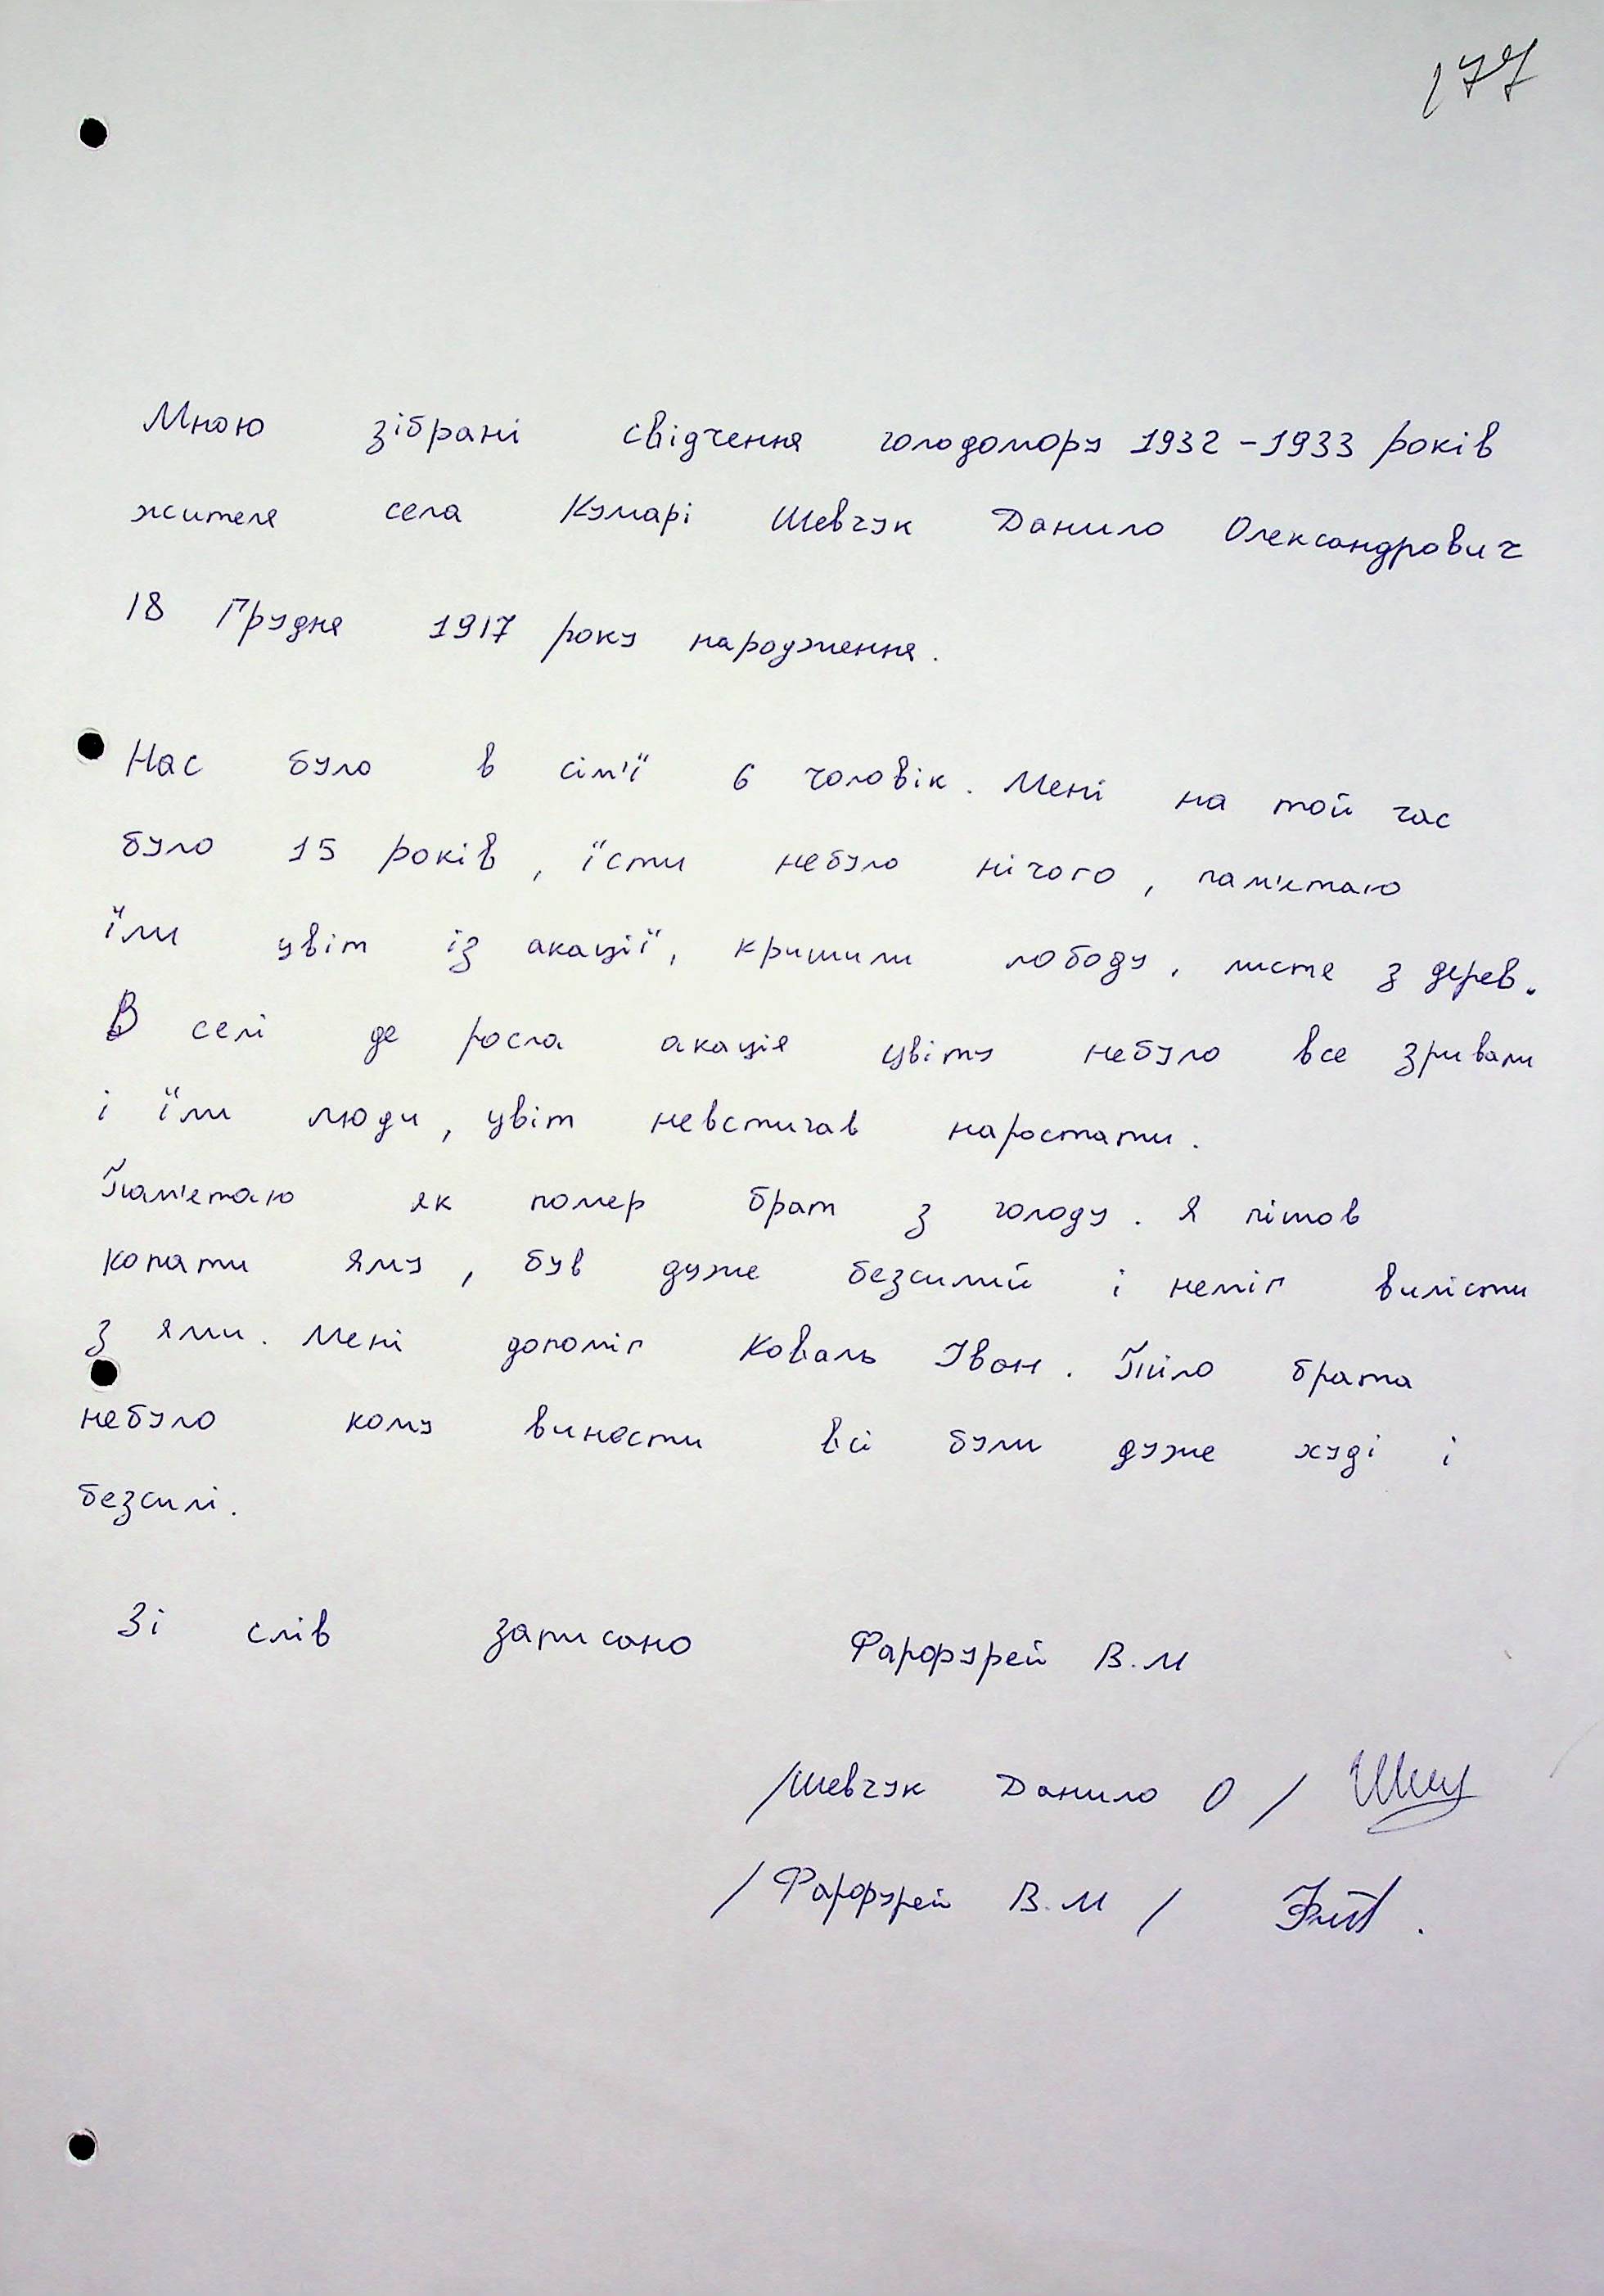 177
Мною зібрані свідчення голодомору 1932-1933 років
жителя села Кумарі Шевчук Данило Олександрович
18 Грудня 1917 року народження.
Нас було в сім'ї 6 чоловік. Мені на той час
було 15 років, їсти небуло нічого, пам'ятаю
їли цвіт із акації, кришили лободу, листя з дерев.
В селі де росла акація цвіту небуло все зривали
і їли люди, цвіт невстигав наростати.
Пам'ятаю як помер брат з голоду. Я пішов
копати яму, був дуже безсилий і неміг вилісти
з ями. Мені допоміг Коваль Іван. Тіло брата
небуло кому виности всі були дуже худі і
безсилі.
Зі слів записано Фарфурей В.М
/Шевчук Данило О/
/Фарфурей В.М/